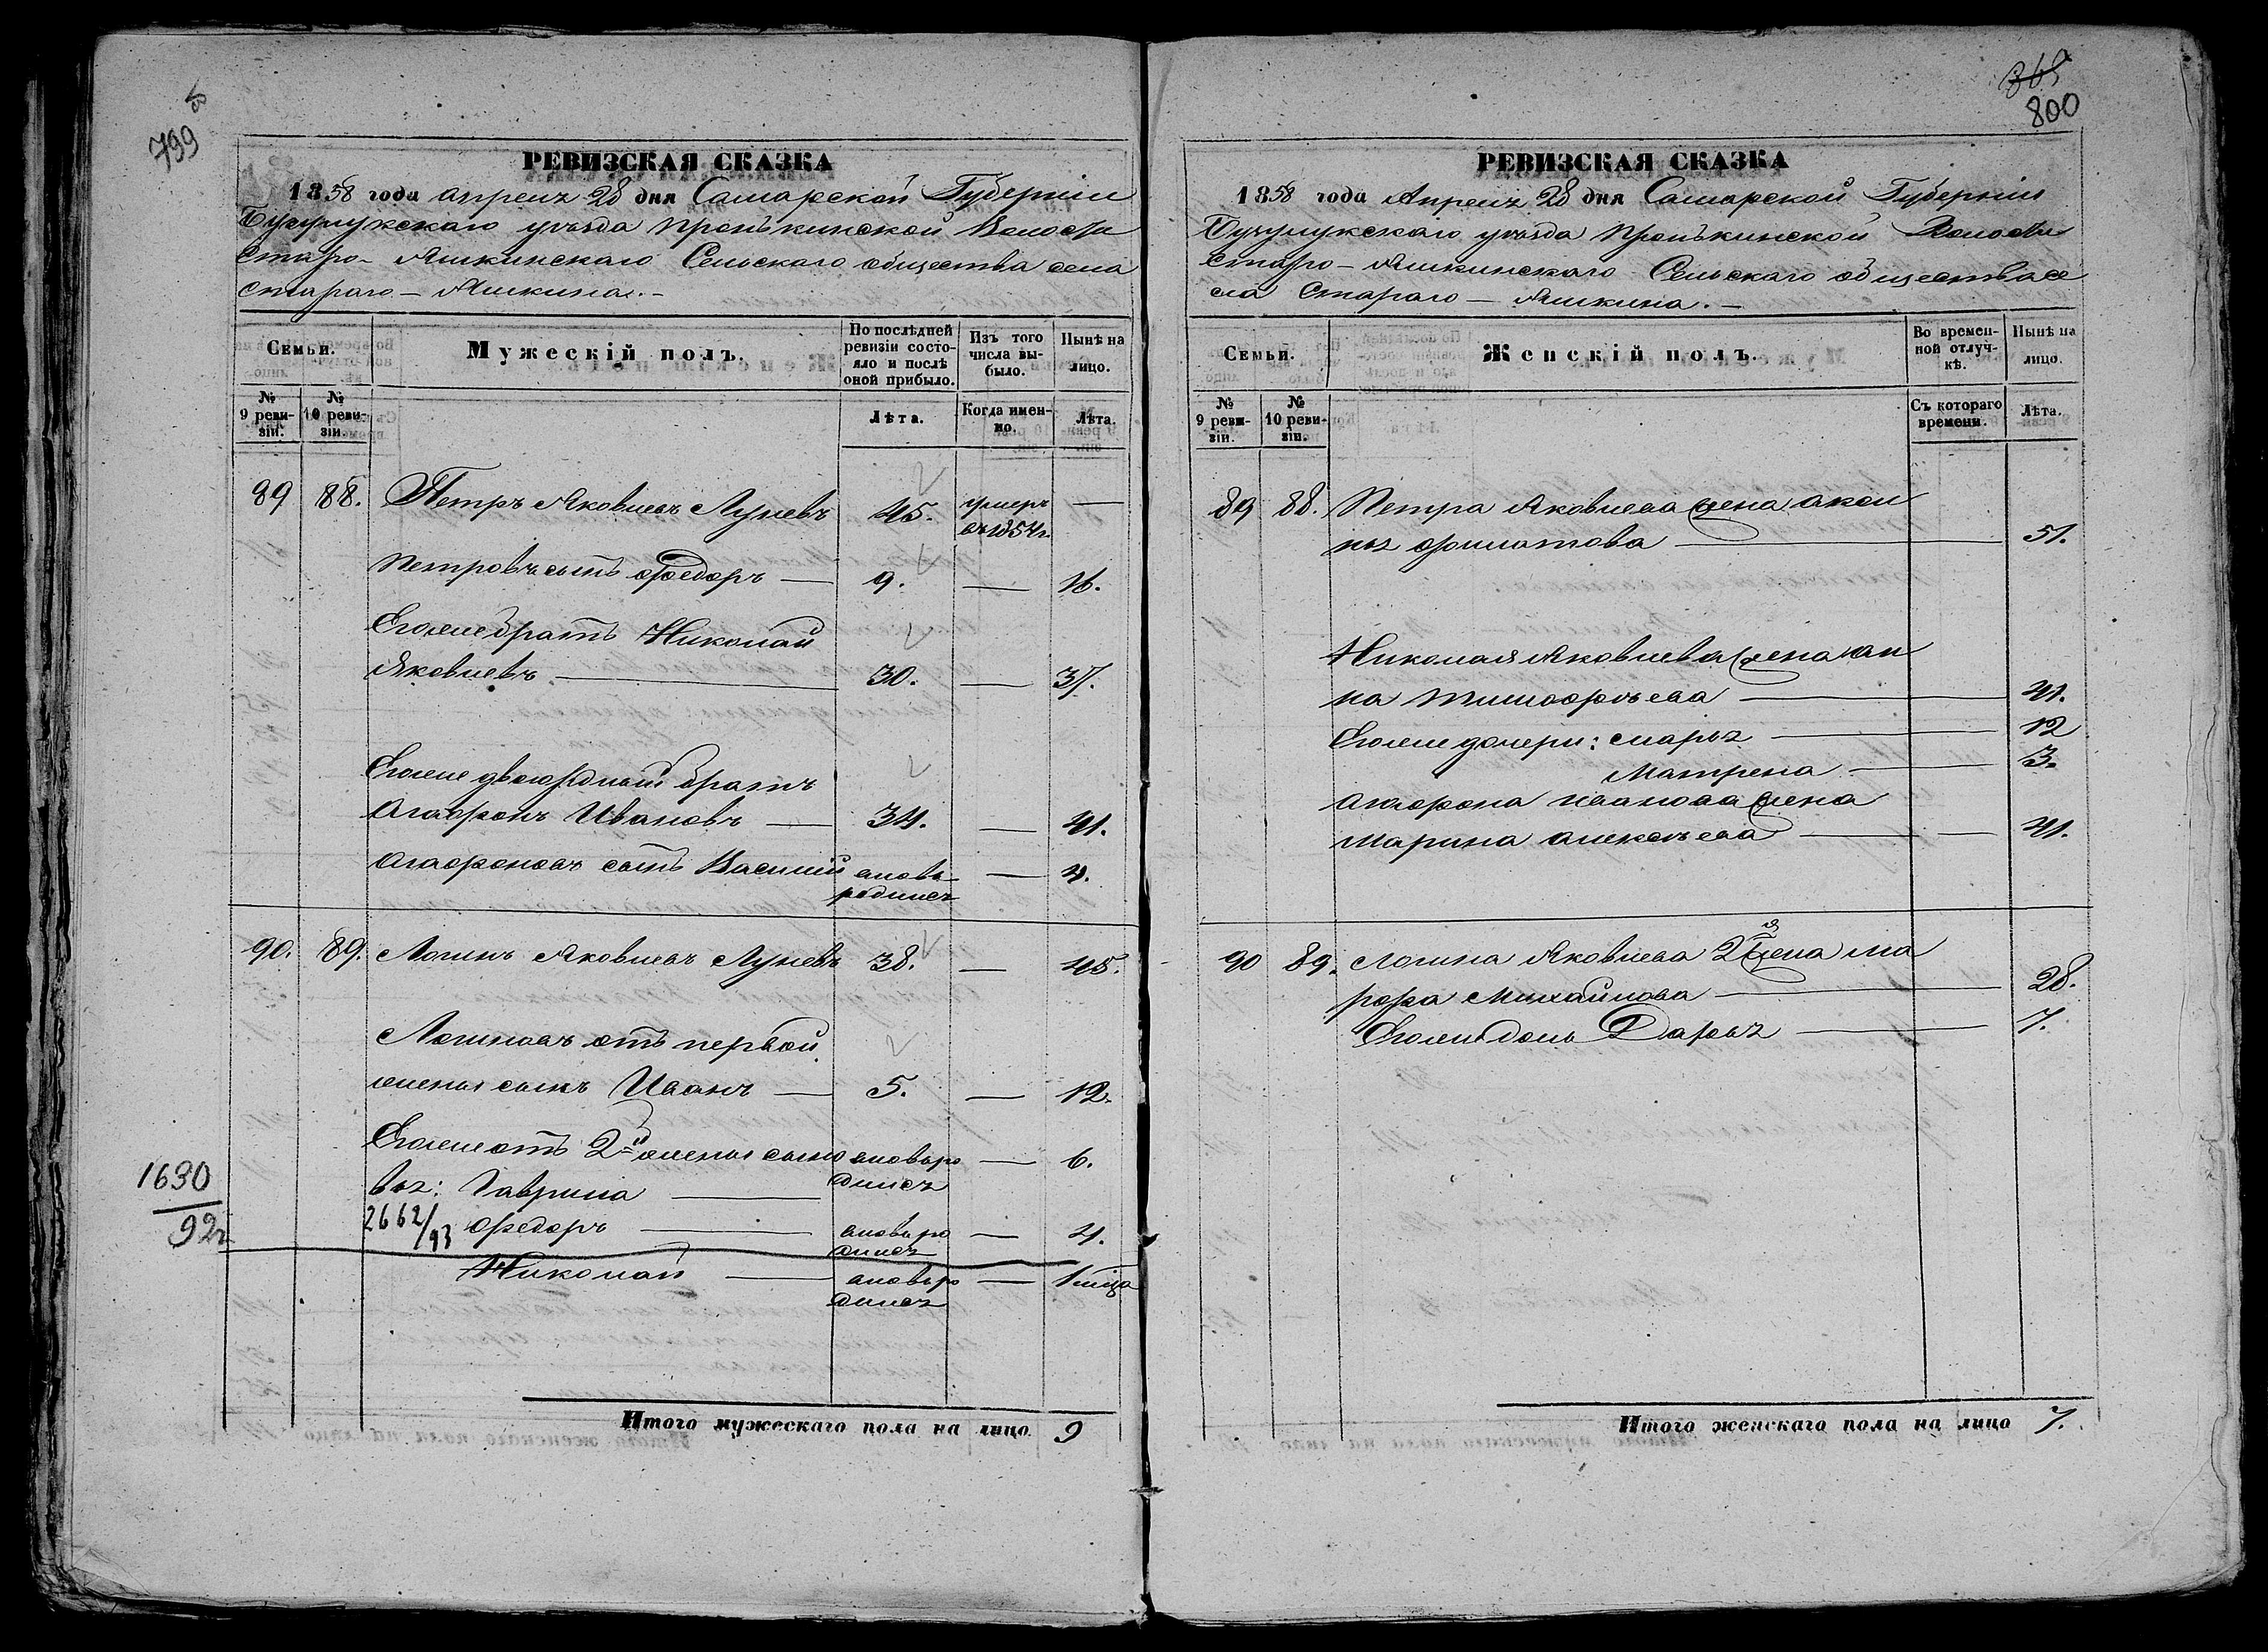 799
РЕВИЗСКАЯ СКАЗКА
1858 года апреля 28 дня Самарской Губерніи
Бузулукскаго уѣзда Пронькинской Волости
Старо-Яшкинскаго Сельскаго общества села
Стараго-Яшкина.-
Семьи.
Мужескій полъ.
По послѣдней ревизіи состояло и послѣ оной прибыло.
Изъ того числа выбыло.
Нынѣ на лицо.
№ 9 ревизіи.
№ 10 ревизіи.
Лѣта.
Когда именно.
Лѣта.
89 88. Петръ Яковлевъ Луневъ 45. умеръ —
въ 1854г.
Петровъ сынъ Федоръ — 9. — 16.
Егоже братъ Николай
Яковлевъ — 30. — 37.
Егоже двоюродный братъ
Агафонъ Ивановъ — 34. — 41.
Агафоновъ сынъ Василий вновь — 4.
родился
90. 89. Логинъ Яковлевъ Луневъ 38. — 45.
Логиновъ отъ первой
жены сынъ Иванъ — 5. — 12.
Егоже отъ 2й жены сыно вновь ро — 6.
вья: Гаврила — дился
1630/92г.
2662/93 Федоръ — вновь ро — 4.
дился
Николай — вновь ро — 1 мѣца
дился
Итого мужескаго пола на лицо 9
365
800
РЕВИЗСКАЯ СКАЗКА
1858 года Апреля 28 дня Самарской Губерніи
Бузулукскаго уѣзда Пронькинской Волости
Старо-Яшкинскаго Сельскаго общества се
ла Стараго-Яшкина.-
Семьи.
Женскій полъ.
Во временной отлучкѣ.
Нынѣ на лицо.
№ 9 ревизіи.
№ 10 ревизіи.
Съ котораго времени.
Лѣта.
89 88. Петра Яковлева жена Акси
нья Филатова — 51.
Николая Яковлева жена Ан
на Тимофѣева — 41.
Егоже дочери: Марья — 12
Матрена — 3.
Агафона Иванова жена
Марина Алексѣева — 41.
90 89. Логина Яковлева 2я жена Ма
рфа Михайлова — 28.
Егоже дочь Дарья — 7.
Итого женскаго пола на лицо 7.